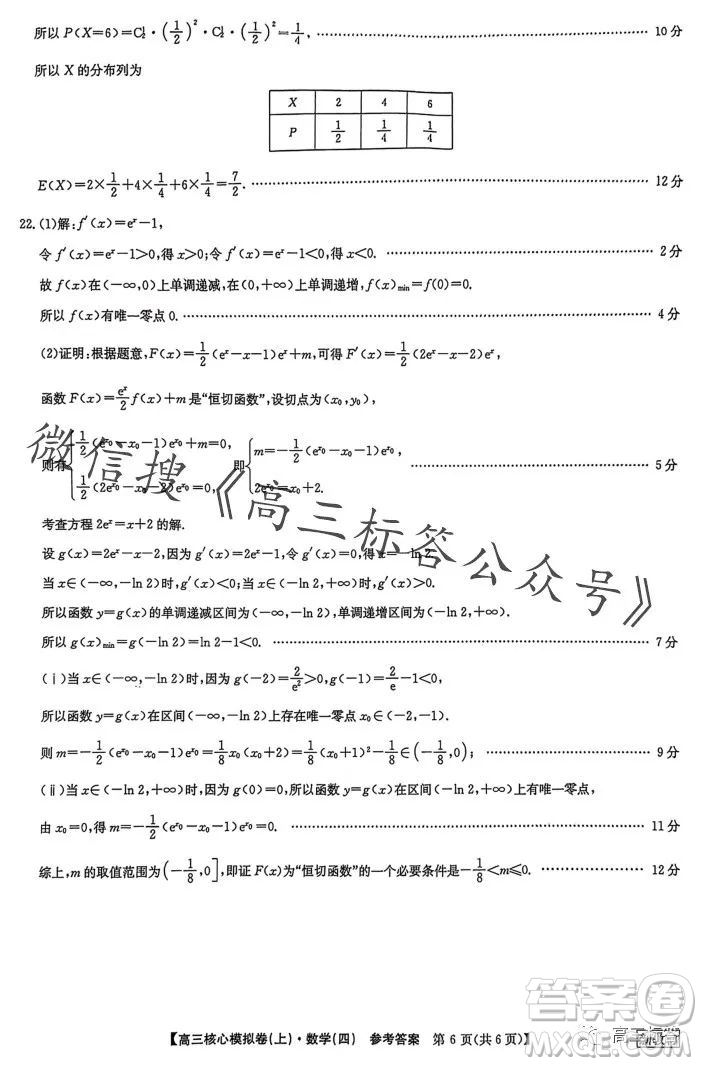 所以 P(X=6)=C½·(1/2)²·C½·(1/2)²=1/4, 10 分
所以 X 的分布列为
X 2 4 6
P 1/2 1/4 1/4
E(X)=2×1/2+4×1/4+6×1/4=7/2. 12 分
22.(1)解:f′(x)=eˣ-1,
令 f′(x)=eˣ-1>0,得 x>0;令 f′(x)=eˣ-1<0,得 x<0. 2 分
故 f(x)在(-∞,0)上单调递减,在(0,+∞)上单调递增,f(x)min=f(0)=0.
所以 f(x)有唯一零点 0. 4 分
(2)证明:根据题意,F(x)=1/2(eˣ-x-1)eˣ+m,可得 F′(x)=1/2(2eˣ-x-2)eˣ,
函数 F(x)=eˣ/2 f(x)+m 是“恒切函数”,设切点为(x₀,y₀),
则有{1/2(e^x₀-x₀-1)e^x₀+m=0, 1/2(2e^x₀-x₀-2)e^x₀=0, 即{m=-1/2(e^x₀-x₀-1)e^x₀, 2e^x₀=x₀+2. 5 分
考查方程 2eˣ=x+2 的解.
设 g(x)=2eˣ-x-2,因为 g′(x)=2eˣ-1,令 g′(x)=0,得 x=-ln 2.
当 x∈(-∞,-ln 2)时,g′(x)<0;当 x∈(-ln 2,+∞)时,g′(x)>0.
所以函数 y=g(x)的单调递减区间为(-∞,-ln 2),单调递增区间为(-ln 2,+∞).
所以 g(x)min=g(-ln 2)=ln 2-1<0. 7 分
(ⅰ)当 x∈(-∞,-ln 2)时,因为 g(-2)=2/e²>0,g(-1)=2/e-1<0,
所以函数 y=g(x)在区间(-∞,-ln 2)上存在唯一零点 x₀∈(-2,-1).
则 m=-1/2(e^x₀-x₀-1)e^x₀=1/8x₀(x₀+2)=1/8(x₀+1)²-1/8∈(-1/8,0); 9 分
(ⅱ)当 x∈(-ln 2,+∞)时,因为 g(0)=0,所以函数 y=g(x)在区间(-ln 2,+∞)上有唯一零点,
由 x₀=0,得 m=-1/2(e^x₀-x₀-1)e^x₀=0. 11 分
综上,m 的取值范围为(-1/8,0],即证 F(x)为“恒切函数”的一个必要条件是-1/8<m≤0. 12 分
微信搜《高三标答公众号》
【高三核心模拟卷(上)·数学(四) 参考答案 第 6 页(共 6 页)】
答案圈